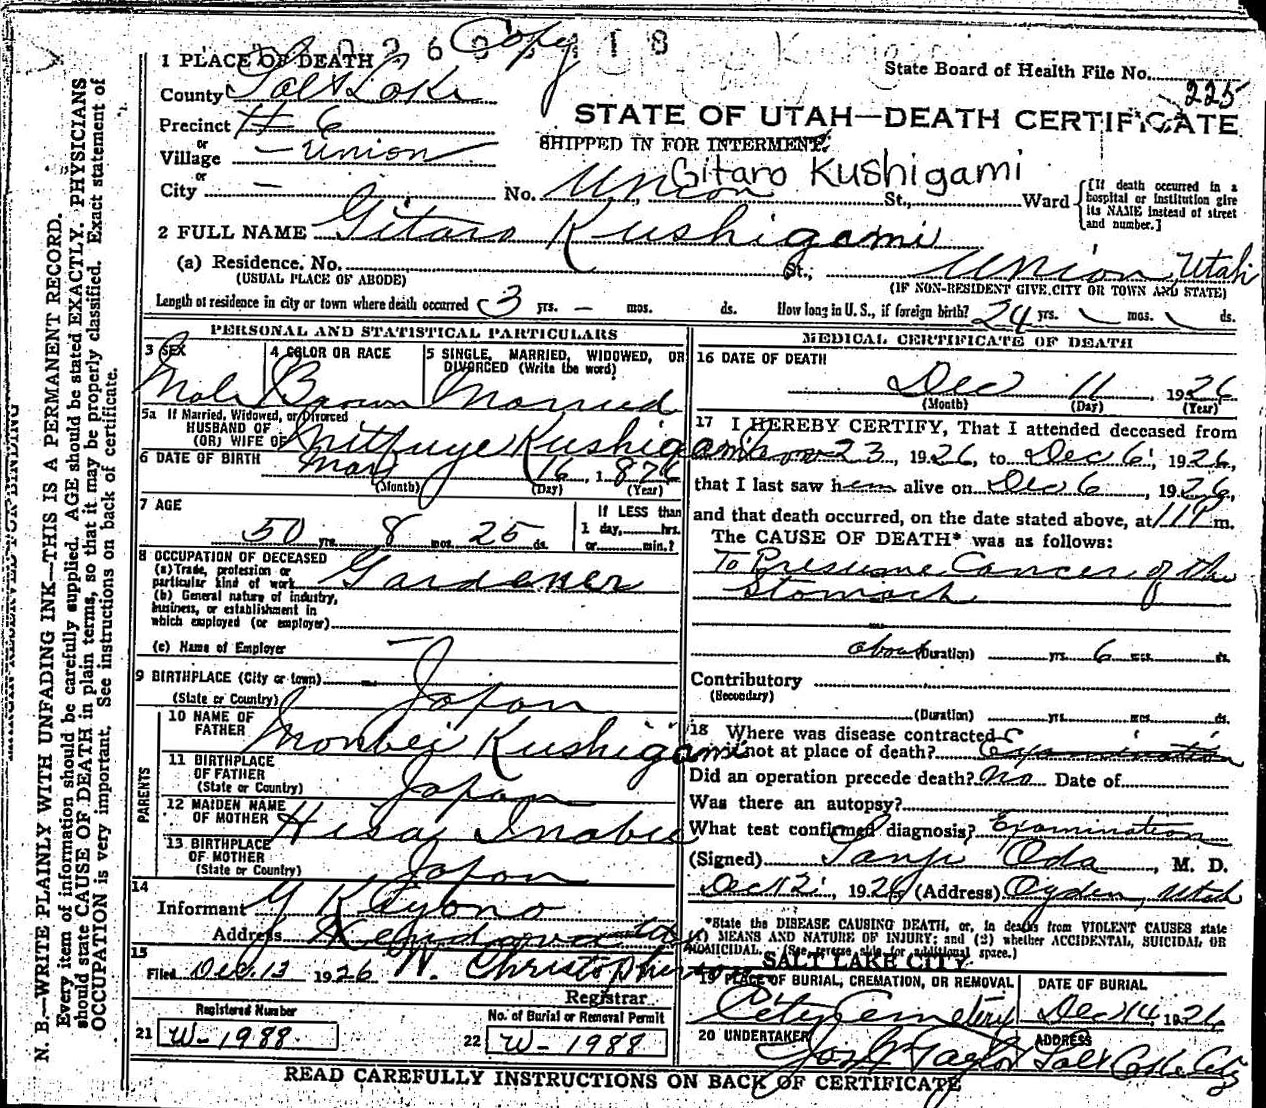 Copy
1 PLACE OF DEATH
State Board of Health File No. 225
County Salt Lake
STATE OF UTAH—DEATH CERTIFICATE
Precinct # 6
or
SHIPPED IN FOR INTERMENT.
Village — Union
Gitaro Kushigami
or
City — No. Union St., Ward
[If death occurred in a
hospital or institution give
its NAME instead of street
and number.]
2 FULL NAME Gitaro Kushigami
(a) Residence. No. St., Union, Utah
(USUAL PLACE OF ABODE) (IF NON-RESIDENT GIVE CITY OR TOWN AND STATE)
Length of residence in city or town where death occurred 3 yrs. — mos. ds. How long in U. S., if foreign birth? 24 yrs. mos. ds.
PERSONAL AND STATISTICAL PARTICULARS
3 SEX 4 COLOR OR RACE 5 SINGLE, MARRIED, WIDOWED, OR
DIVORCED (Write the word)
Male Brown Married
5a If Married, Widowed, or Divorced
HUSBAND OF
(OR) WIFE OF Mitsuye Kushigami
6 DATE OF BIRTH Mar 16, 1876
(Month) (Day) (Year)
7 AGE If LESS than
50 yrs. 8 mos. 25 ds. 1 day, hrs.
or min.?
8 OCCUPATION OF DECEASED
(a) Trade, profession or
particular kind of work Gardener
(b) General nature of industry,
business, or establishment in
which employed (or employer)
(c) Name of Employer —
9 BIRTHPLACE (City or town)
(State or Country) Japan
PARENTS
10 NAME OF
FATHER Monbei Kushigami
11 BIRTHPLACE
OF FATHER
(State or Country) Japan
12 MAIDEN NAME
OF MOTHER Hisai Inabe
13 BIRTHPLACE
OF MOTHER
(State or Country) Japan
14
Informant Y K
Address
15
Filed Dec 13 1926 N. Christopherson
Registrar
Registered Number No. of Burial or Removal Permit
21 W-1988 22 W-1988
MEDICAL CERTIFICATE OF DEATH
16 DATE OF DEATH
Dec 11, 1926
(Month) (Day) (Year)
17 I HEREBY CERTIFY, That I attended deceased from
Nov 23, 1926, to Dec 6, 1926,
that I last saw him alive on Dec 6, 1926,
and that death occurred, on the date stated above, at 11 P m.
The CAUSE OF DEATH* was as follows:
To Presume Cancer of the
Stomach
about (Duration) yrs. 6 mos. ds.
Contributory
(Secondary)
(Duration) yrs. mos. ds.
18 Where was disease contracted
if not at place of death? Examination
Did an operation precede death? No Date of
Was there an autopsy?
What test confirmed diagnosis? Examination
(Signed) Sanji Oda, M. D.
Dec 12, 1926 (Address) Ogden, Utah
*State the DISEASE CAUSING DEATH, or, in deaths from VIOLENT CAUSES state
(1) MEANS AND NATURE OF INJURY; and (2) whether ACCIDENTAL, SUICIDAL OR
HOMICIDAL. (See reverse side for additional space.)
SALT LAKE CITY
19 PLACE OF BURIAL, CREMATION, OR REMOVAL DATE OF BURIAL
City Cemetery Dec 14, 1926
20 UNDERTAKER ADDRESS
Jos W Taylor Salt Lake City
READ CAREFULLY INSTRUCTIONS ON BACK OF CERTIFICATE
N. B.—WRITE PLAINLY WITH UNFADING INK—THIS IS A PERMANENT RECORD.
Every item of information should be carefully supplied. AGE should be stated EXACTLY. PHYSICIANS
should state CAUSE OF DEATH in plain terms, so that it may be properly classified. Exact statement of
OCCUPATION is very important. See instructions on back of certificate.